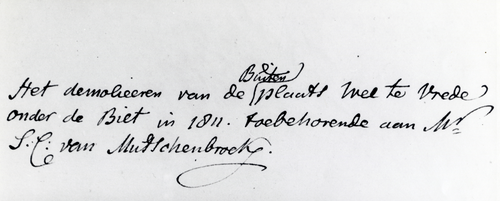 Het demolieeren van de Buiten plaats Wel te Vrede
onder de Biet in 1811. toebehorende aan Mr
S: C: van Musschenbroek.